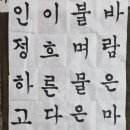 바람은마
불며물은
이흐른다
인정하고